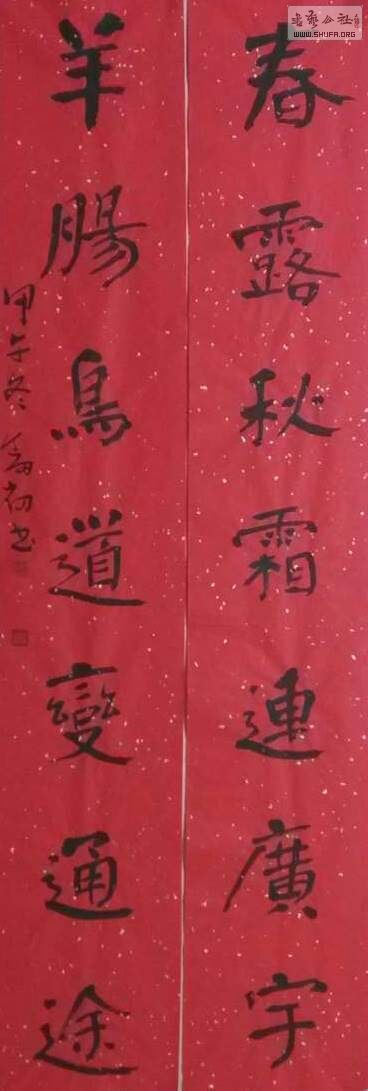 春露秋霜連廣宇
羊腸鳥道變通途
甲午冬
初书
书艺公社
WWW.SHUFA.ORG